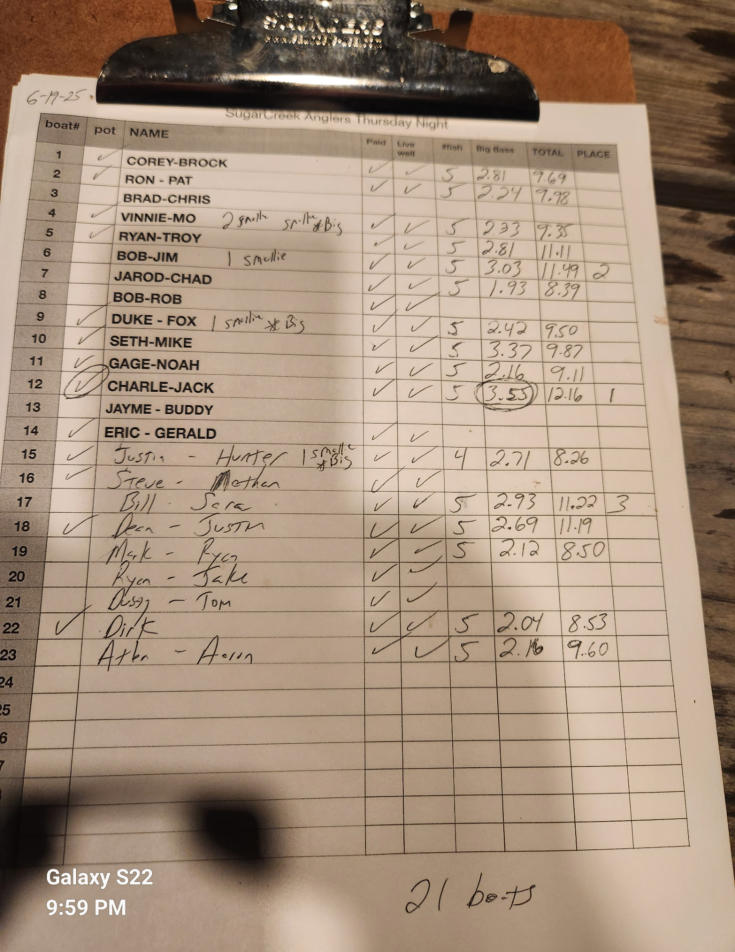 6-19-25
SugarCreek Anglers Thursday Night
boat# pot NAME Paid Live well #fish Big Bass TOTAL PLACE
1 ✓ COREY-BROCK ✓ ✓ 5 2.81 9.69
2 ✓ RON - PAT ✓ ✓ 5 2.24 9.98
3 BRAD-CHRIS
4 ✓ VINNIE-MO 2 smallie smallie *Big ✓ ✓ 5 2.33 9.35
5 ✓ RYAN-TROY ✓ ✓ 5 2.81 11.11
6 BOB-JIM 1 smallie ✓ ✓ 5 3.03 11.49 2
7 JAROD-CHAD ✓ ✓ 5 1.93 8.39
8 BOB-ROB ✓ ✓
9 ✓ DUKE - FOX 1 smallie *Big ✓ ✓ 5 2.42 9.50
10 ✓ SETH-MIKE ✓ ✓ 5 3.37 9.87
11 ✓ GAGE-NOAH ✓ ✓ 5 2.16 9.11
12 ✓ CHARLE-JACK ✓ ✓ 5 3.55 12.16 1
13 JAYME - BUDDY
14 ✓ ERIC - GERALD ✓ ✓
15 ✓ Justin - Hunter 1 smallie *Big ✓ ✓ 4 2.71 8.26
16 ✓ Steve - Nathan ✓ ✓
17 Bill - Sara ✓ ✓ 5 2.93 11.22 3
18 ✓ Dean - Justin ✓ ✓ 5 2.69 11.19
19 Mark - Ryan ✓ ✓ 5 2.12 8.50
20 Ryan - Jake ✓ ✓
21 - Tom ✓ ✓
22 ✓ Dirk ✓ ✓ 5 2.04 8.53
23 - Aaron ✓ ✓ 5 2.16 9.60
24
25
21 boats
Galaxy S22
9:59 PM